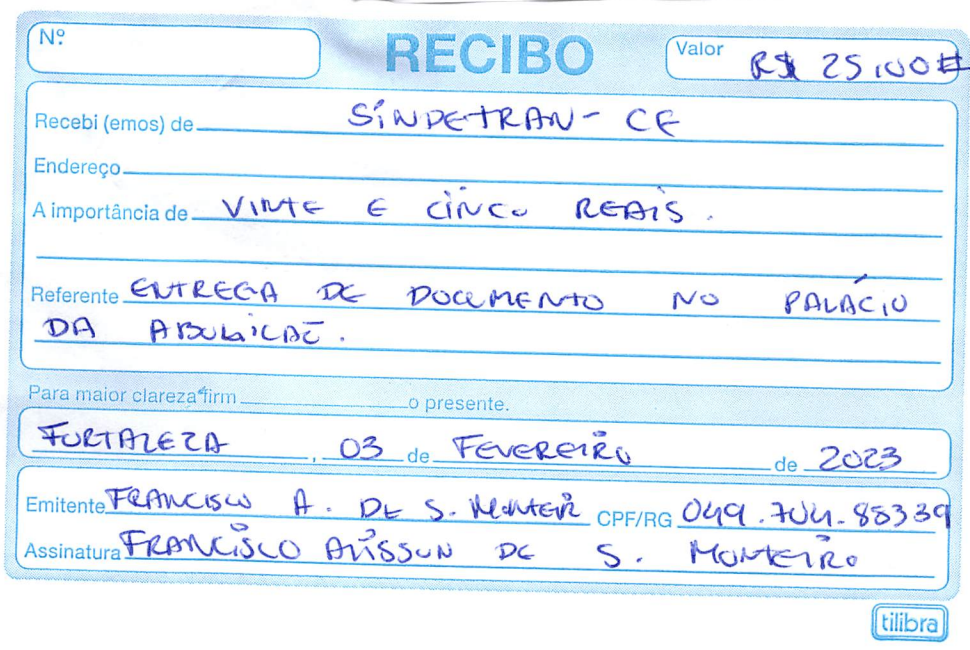 Nº
RECIBO
Valor R$ 25,00#
Recebi (emos) de SINDETRAN - CE
Endereço
A importância de VINTE E CINCO REAIS.
Referente ENTREGA DE DOCUMENTO NO PALÁCIO
DA ABOLIÇÃO.
Para maior clareza firm o presente.
FORTALEZA, 03 de FEVEREIRO de 2023
Emitente FRANCISCO A. DE S. MONTEIR CPF/RG 049.704.88339
Assinatura FRANCISCO ALISSON DE S. MONTEIRO
tilibra